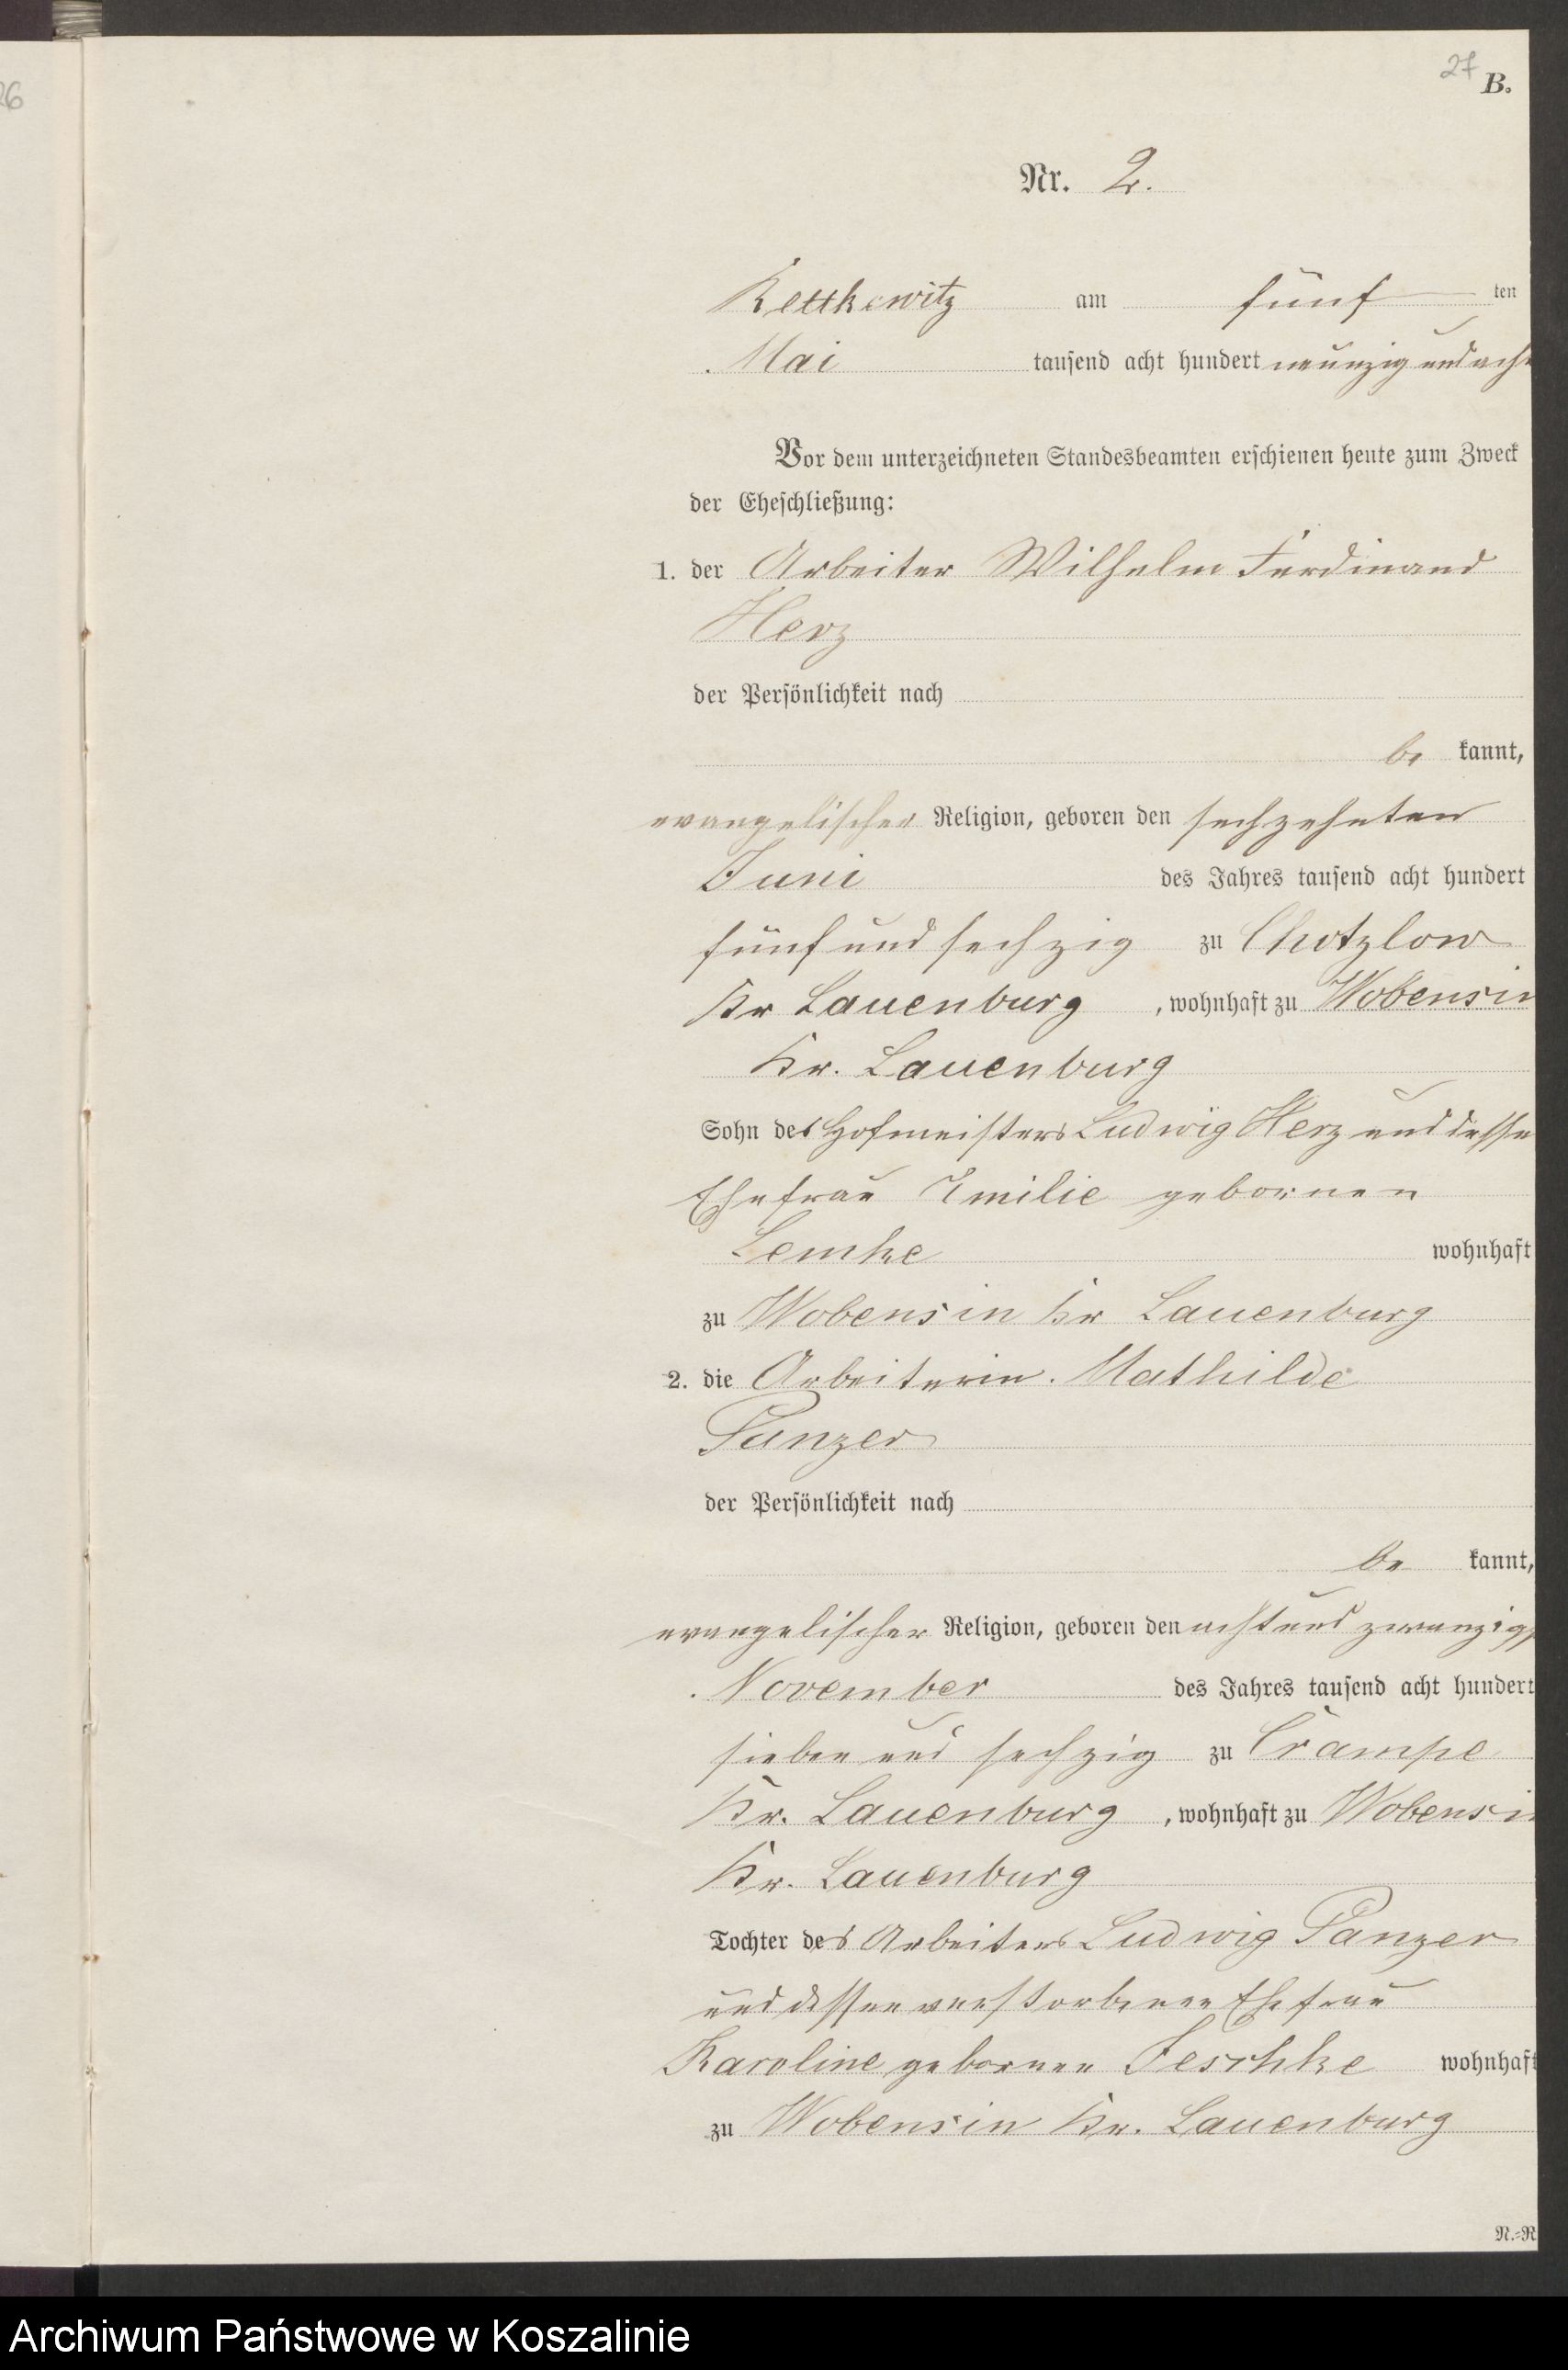 26
27
B.
Nr. 2.
Rettkewitz am fünf ten
Mai tausend acht hundert neunzig und acht
Vor dem unterzeichneten Standesbeamten erschienen heute zum Zweck
der Eheschließung:
1. der Arbeiter Wilhelm Ferdinand
Herz
der Persönlichkeit nach
be kannt,
evangelischer Religion, geboren den sechzehnten
Juni des Jahres tausend acht hundert
fünf und sechzig zu Chotzlow
Kr Lauenburg, wohnhaft zu Wobensin
Kr. Lauenburg
Sohn des Hofmeisters Ludwig Herz und desse
Ehefrau Emilie gebornen
Lemke wohnhaft
zu Wobensin Kr Lauenburg
2. die Arbeiterin Mathilde
Panzer
der Persönlichkeit nach
be kannt,
evangelischer Religion, geboren den acht und zwanzigs
November des Jahres tausend acht hundert
sieben und sechzig zu Crampe
Kr. Lauenburg, wohnhaft zu Wobensin
Kr. Lauenburg
Tochter des Arbeiters Ludwig Panzer
und dessen verstorbenen Ehefrau
Karoline gebornen Jeschke wohnhaft
zu Wobensin Kr. Lauenburg
N.=R
Archiwum Państwowe w Koszalinie